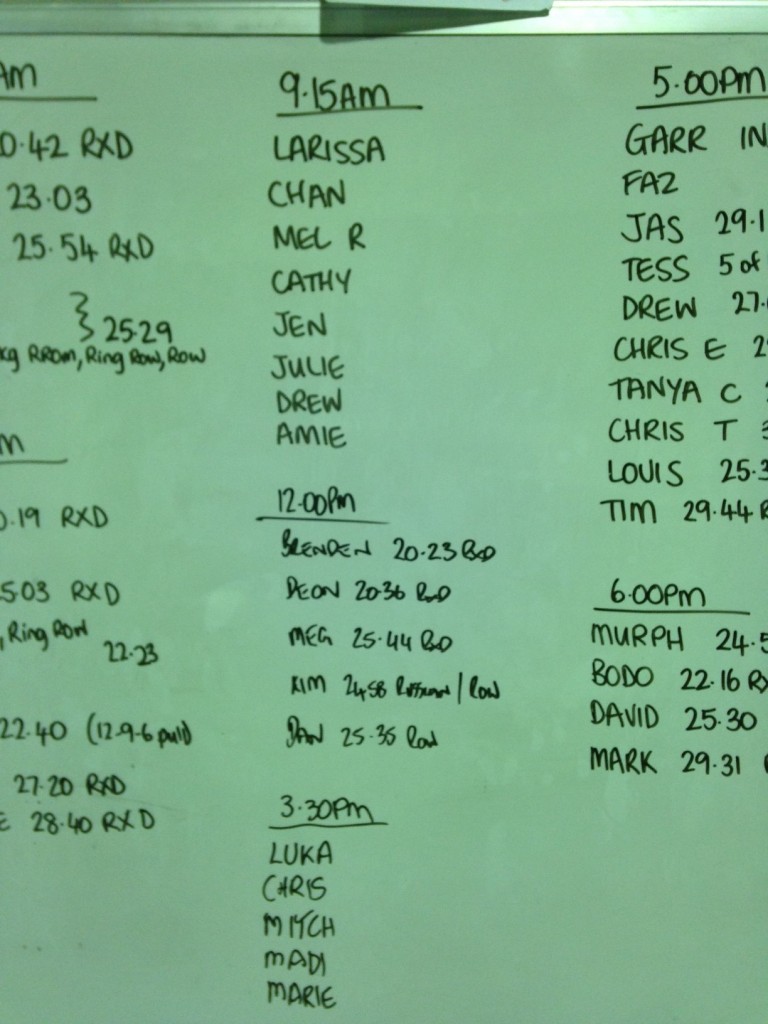 AM
0.42 RXD
23.03
25.54 RXD
25.29
kg RROM, Ring Row, Row
M
0.19 RXD
503 RXD
, Ring Row
22.23
22.40 (12-9-6 pull)
27.20 RXD
E 28.40 RXD
9.15AM
LARISSA
CHAN
MEL R
CATHY
JEN
JULIE
DREW
AMIE
12.00PM
BRENDEN 20.23 RXD
DEON 20.36 RXD
MEG 25.44 RXD
KIM 24.58 / Row
DAN 25.35 Row
3.30PM
LUKA
CHRIS
MITCH
MADI
MARIE
5.00PM
GARR IN
FAZ
JAS 29.1
TESS 5 of
DREW 27.
CHRIS E 2
TANYA C
CHRIS T 3
LOUIS 25.3
TIM 29.44 R
6.00PM
MURPH 24.5
BODO 22.16 RX
DAVID 25.30
MARK 29.31